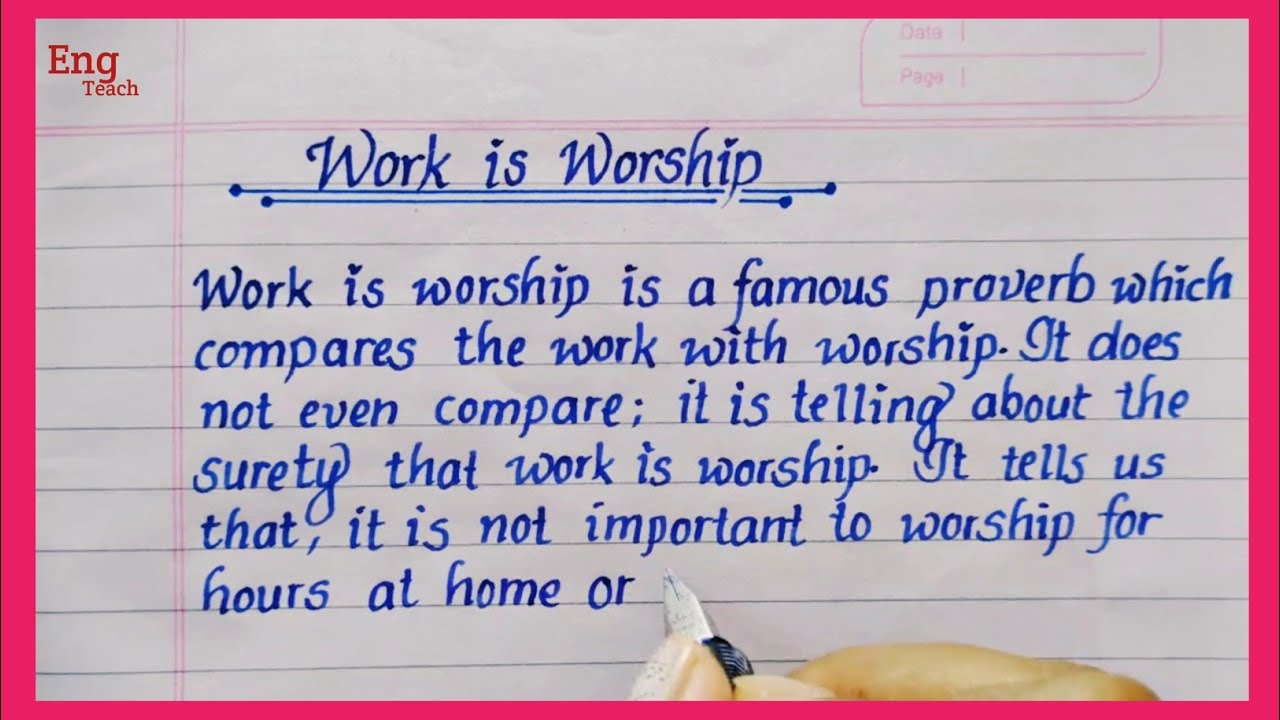 Eng
Teach
Date
Page
Work is Worship
Work is worship is a famous proverb which
compares the work with worship. It does
not even compare; it is telling about the
surety that work is worship. It tells us
that, it is not important to worship for
hours at home or